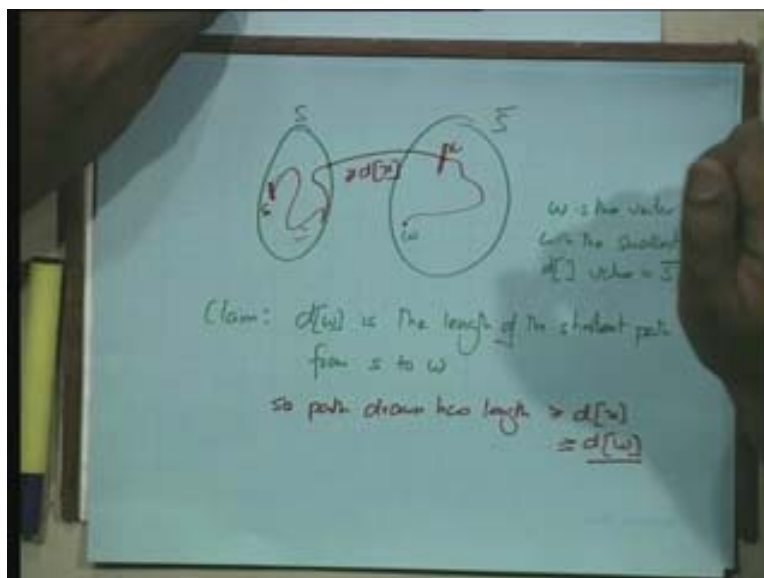 S
S̅
≥d[x]
x
s
w
w is the vertex
with the smallest
d[] value in S̅
Claim: d[w] is the length of the shortest path
from s to w
so path drawn has length ≥ d[x]
≥ d[w]